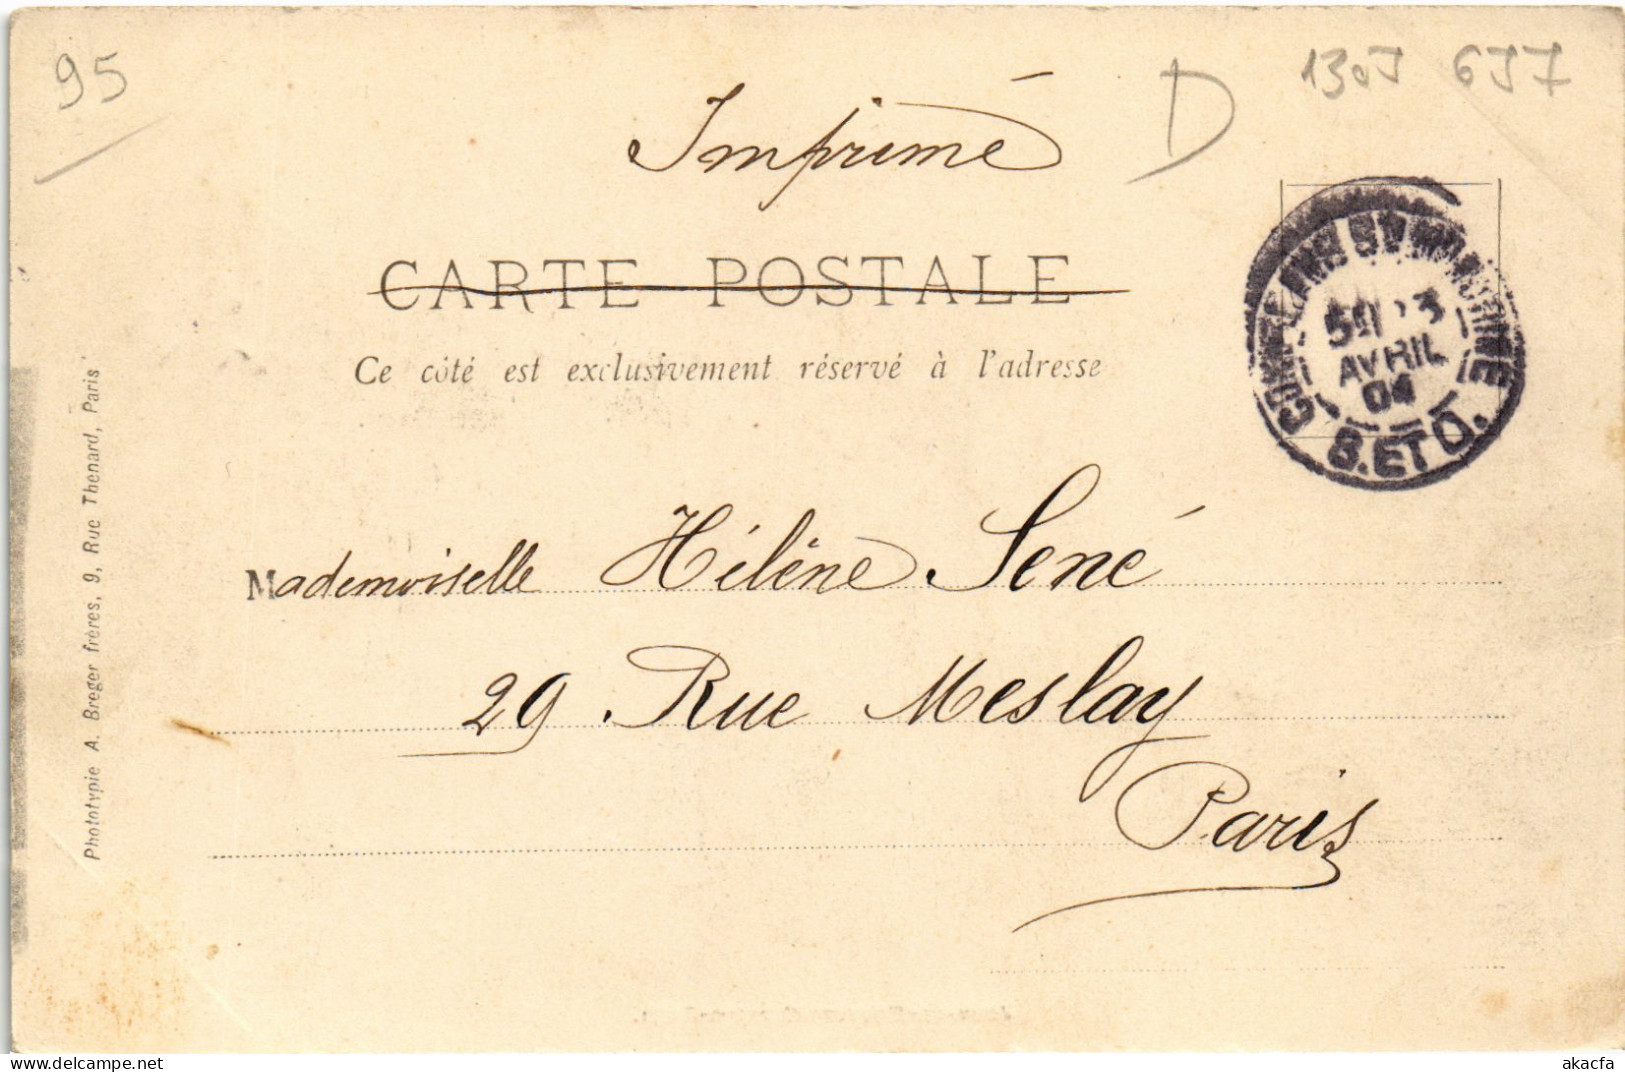 95
D
1305 657
Imprimé
CARTE POSTALE
Ce côté est exclusivement réservé à l'adresse
AVRIL
04
S. ET O.
Mademoiselle Hélène Sené
29 Rue Meslay
Paris
Phototypie A. Breger frères, 9, Rue Thenard, Paris
akacfa